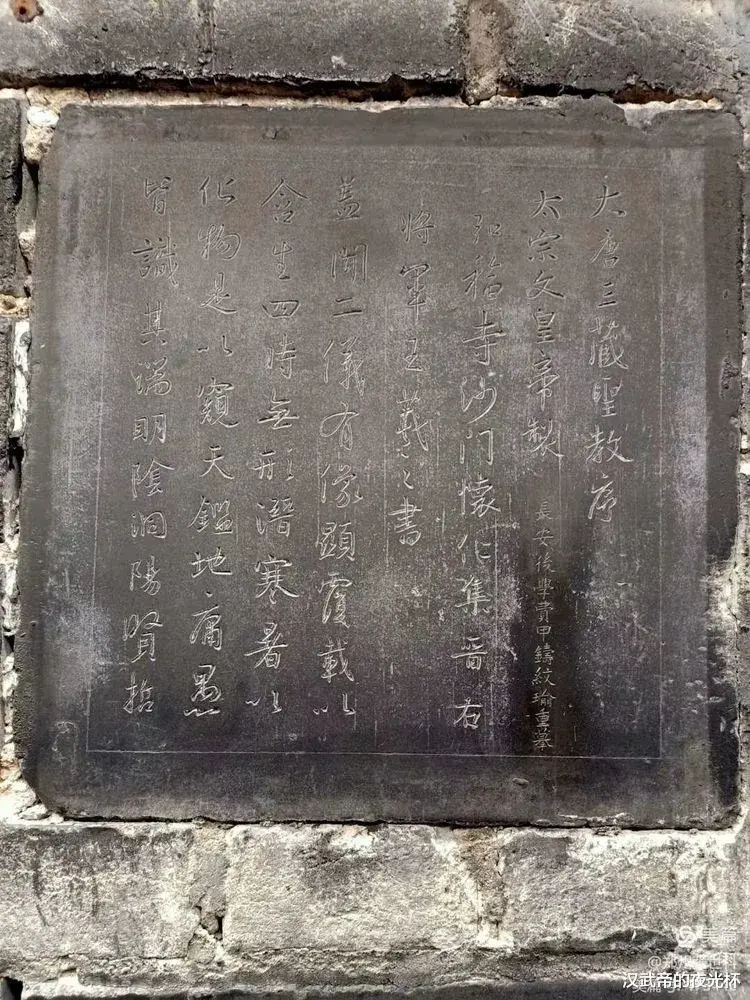 大唐三藏聖教序
太宗文皇帝製 長安後學費甲鑄紋瑜重摹
弘福寺沙門懷仁集晉右
將軍王羲之書
蓋聞二儀有像顯覆載以
含生四時無形潛寒暑以
化物是以窺天鑑地庸愚
皆識其端明陰洞陽賢哲
美篇
汉武帝的夜光杯